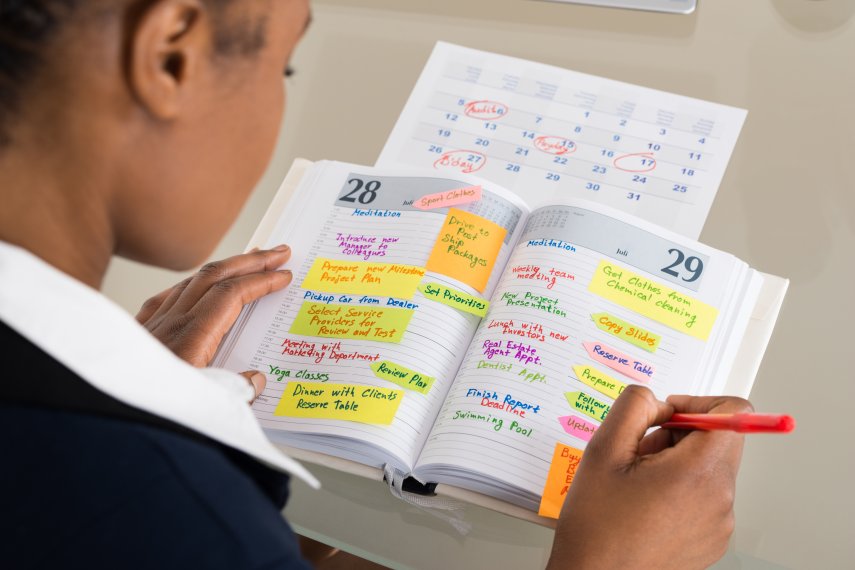 1 2 3 4
5 6 7 8 9 10 11
12 13 14 15 16 17 18
19 20 21 22 23 24 25
26 27 28 29 30 31
Payday
B'day
28
Juli
Sport Clothes
Meditation
Drive to
Post
Ship
Packages
Introduce new
Manager to
colleagues
Prepare new Milestone
Project Plan
Set Priorities
Pickup Car from Dealer
Select, Service
Providers for
Review and Test
Meeting with
Marketing Department
Review Plan
Yoga Classes
Dinner with Clients
Reserve Table
Juli
29
Meditation
Get Clothes from
Chemical cleaning
Weekly team
meeting
New Project
Presentation
Copy Slides
Lunch with new
Investors
Reserve Table
Real Estate
Agent Appt.
Dentist Appt.
Prepare
Follow
with
Finish Report
Deadline
Update
Swimming Pool